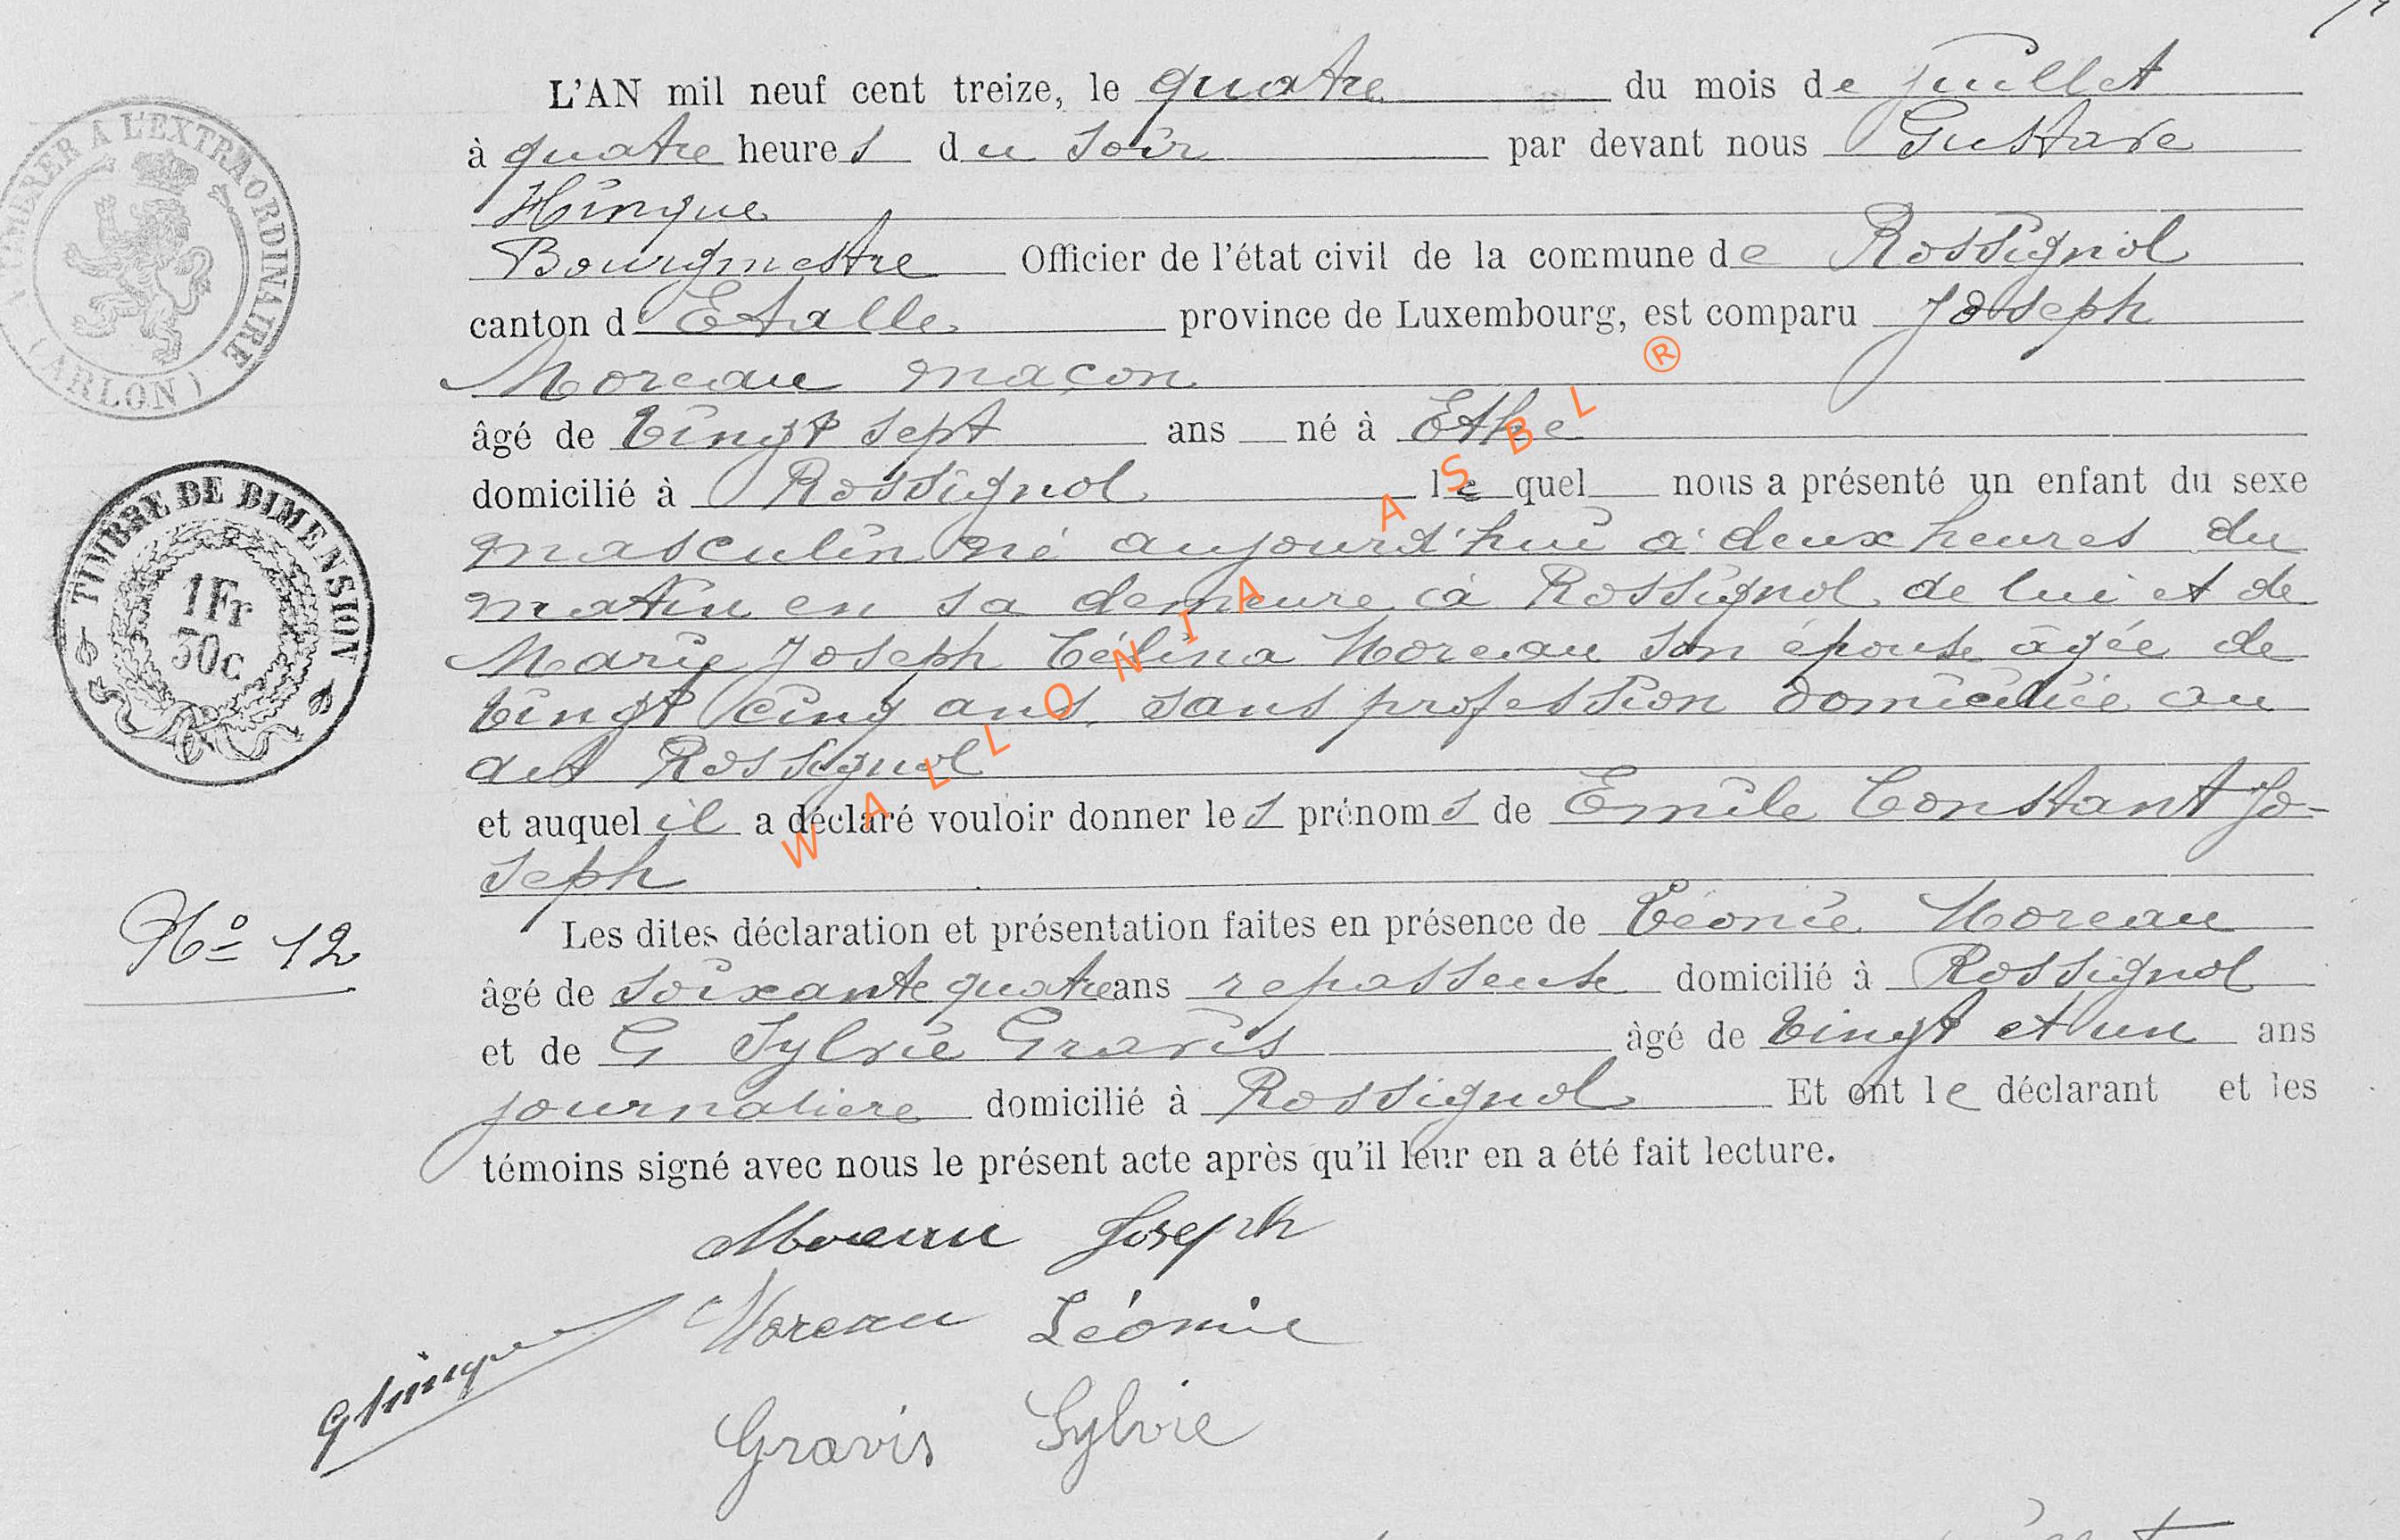 L'AN mil neuf cent treize, le quatre du mois de juillet
à quatre heures du soir par devant nous Gustave
Hinque
Bourgmestre Officier de l'état civil de la commune de Rossignol
canton d'Etalle province de Luxembourg, est comparu Joseph
Moreau maçon
âgé de vingt sept ans né à Ethe
domicilié à Rossignol lequel nous a présenté un enfant du sexe
masculin né aujourd'hui à deux heures du
matin en sa demeure à Rossignol de lui et de
Marie Joseph Célina Moreau son épouse âgée de
vingt cinq ans, sans profession domiciliée au
dit Rossignol
et auquel il a déclaré vouloir donner les prénoms de Emile Constant Jo-
seph
Les dites déclaration et présentation faites en présence de Léonie Moreau
âgé de soixante quatre ans repasseuse domicilié à Rossignol
et de G Sylvie Gravis âgé de vingt et un ans
journaliere domicilié à Rossignol Et ont le déclarant et les
témoins signé avec nous le présent acte après qu'il leur en a été fait lecture.
Moreau Joseph
Moreau Léonie
GHinque
Gravis Sylvie
No 12
TIMBRER À L'EXTRAORDINAIRE
(ARLON)
TIMBRE DE DIMENSION
1Fr
30c
WALLONIA ASBL ®